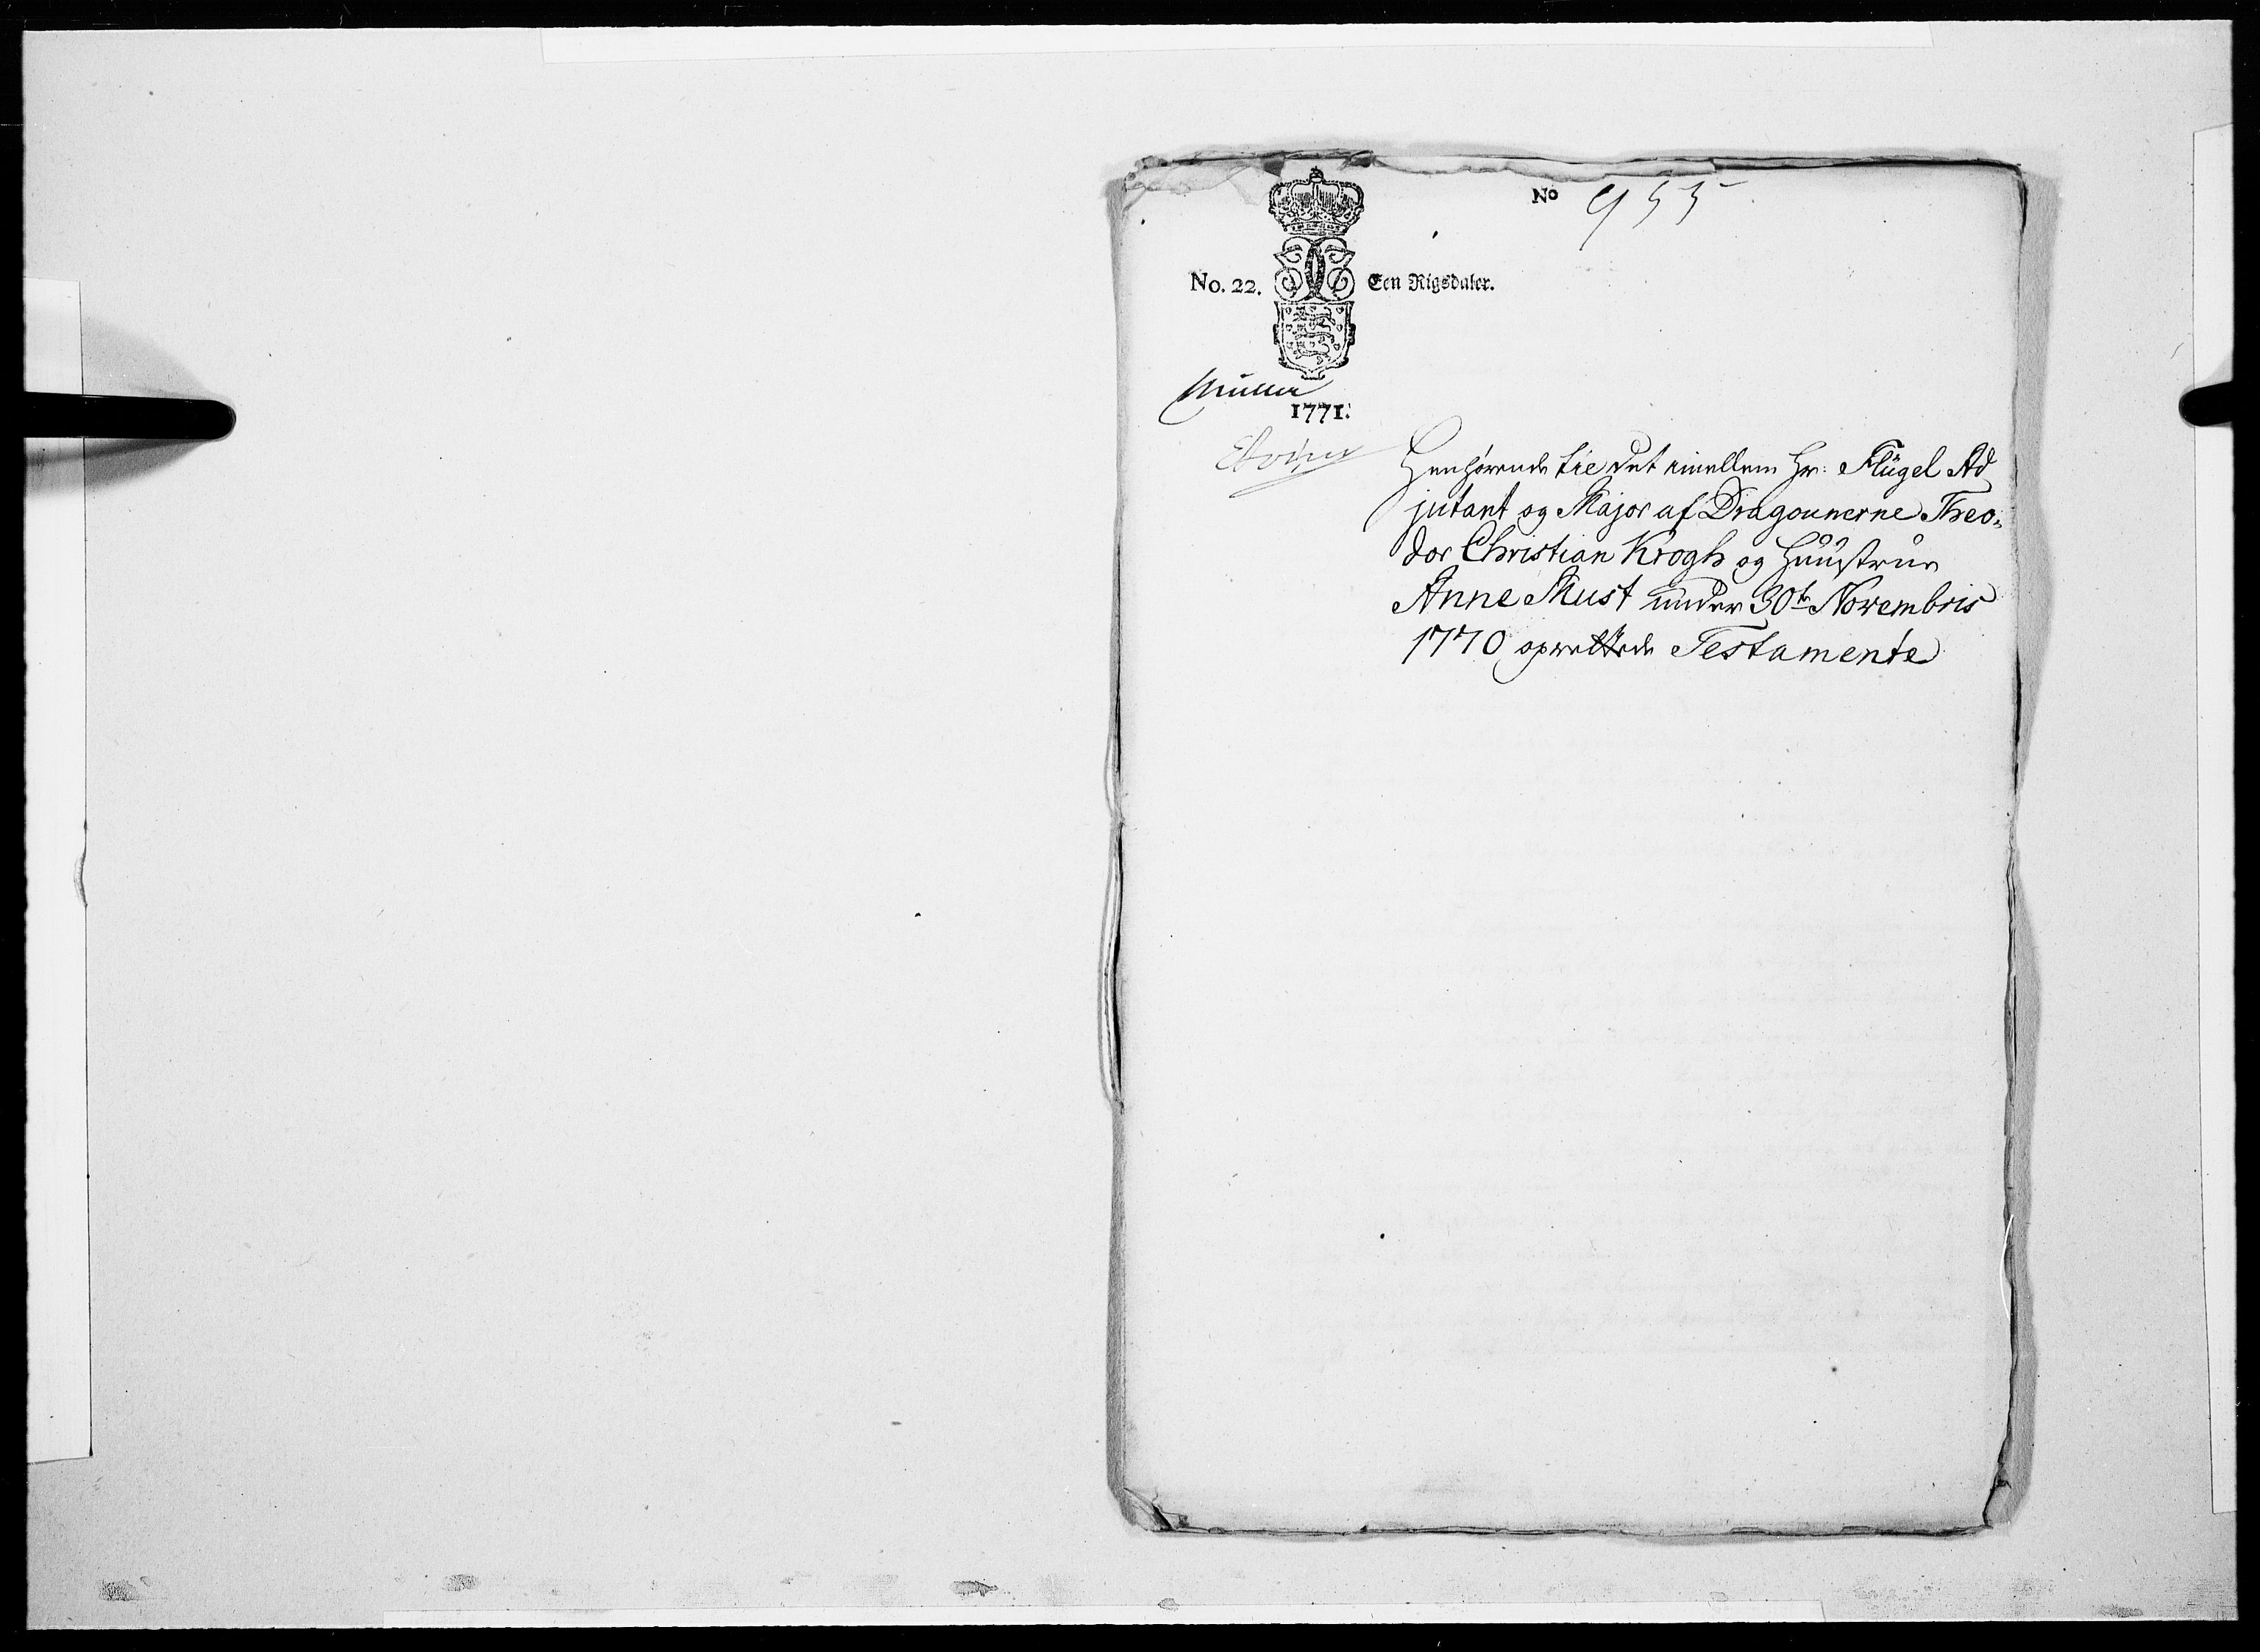 No 955
No. 22. Een Rigsdaler.
Müller
1771.
Henhørende til det imellem Hr: Flügel Ad
jutant og Major af Dragonnerne Theo-
dor Christian Krogh og Huustrue
Anne Must under 30te Novembris
1770 oprettede Testamente